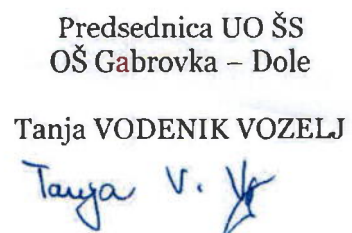 Predsednica UO ŠS
OŠ Gabrovka – Dole
Tanja VODENIK VOZELJ
Tanja V.